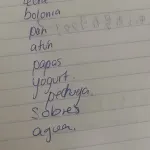 leche
bolonia
pan
atún
papas
yogurt.
pechuga.
sobres
agua.